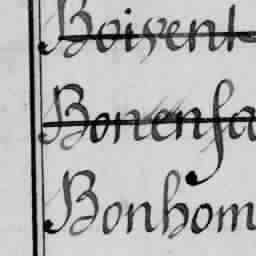 Boivent
Bonenfa
Bonhom